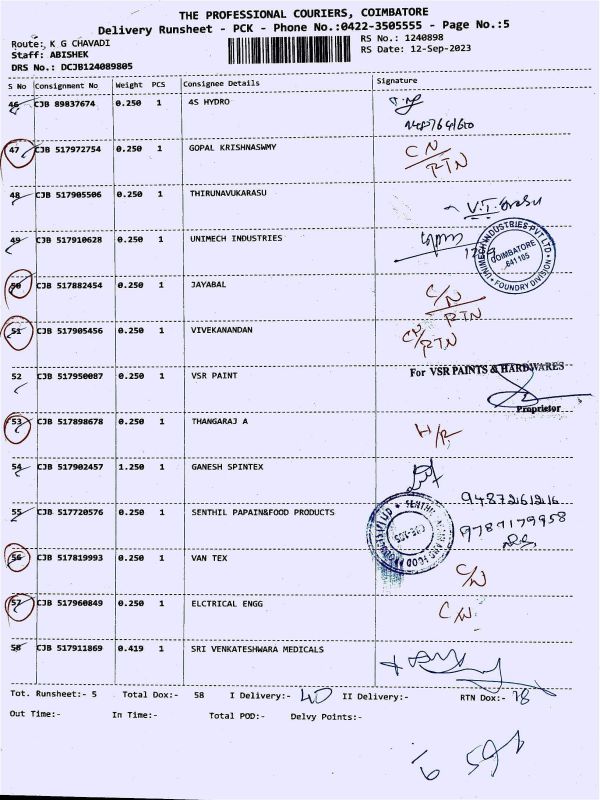 THE PROFESSIONAL COURIERS, COIMBATORE
Delivery Runsheet - PCK - Phone No.:0422-3505555 - Page No.:5
Route: K G CHAVADI
RS No.: 1240898
Staff: ABISHEK
RS Date: 12-Sep-2023
DRS No.: DCJB124089805
S No Consignment No Weight PCS Consignee Details Signature
46 CJB 89837674 0.250 1 4S HYDRO
47 CJB 517972754 0.250 1 GOPAL KRISHNASWMY CN/RTN
48 CJB 517905506 0.250 1 THIRUNAVUKARASU
49 CJB 517910628 0.250 1 UNIMECH INDUSTRIES
UNIMECH INDUSTRIES PVT LTD
COIMBATORE
641 105
FOUNDRY DIVISION
50 CJB 517882454 0.250 1 JAYABAL C/N RTN
51 CJB 517905456 0.250 1 VIVEKANANDAN CN/RTN
52 CJB 517950087 0.250 1 VSR PAINT For VSR PAINTS & HARDWARES
Proprietor
53 CJB 517898678 0.250 1 THANGARAJ A
54 CJB 517902457 1.250 1 GANESH SPINTEX
55 CJB 517720576 0.250 1 SENTHIL PAPAIN&FOOD PRODUCTS
9787179958
56 CJB 517819993 0.250 1 VAN TEX C/N
57 CJB 517960849 0.250 1 ELCTRICAL ENGG C/N
58 CJB 517911869 0.419 1 SRI VENKATESHWARA MEDICALS
Tot. Runsheet:- 5 Total Dox:- 58 I Delivery:- 40 II Delivery:- RTN Dox:- 18
Out Time:- In Time:- Total POD:- Delvy Points:-